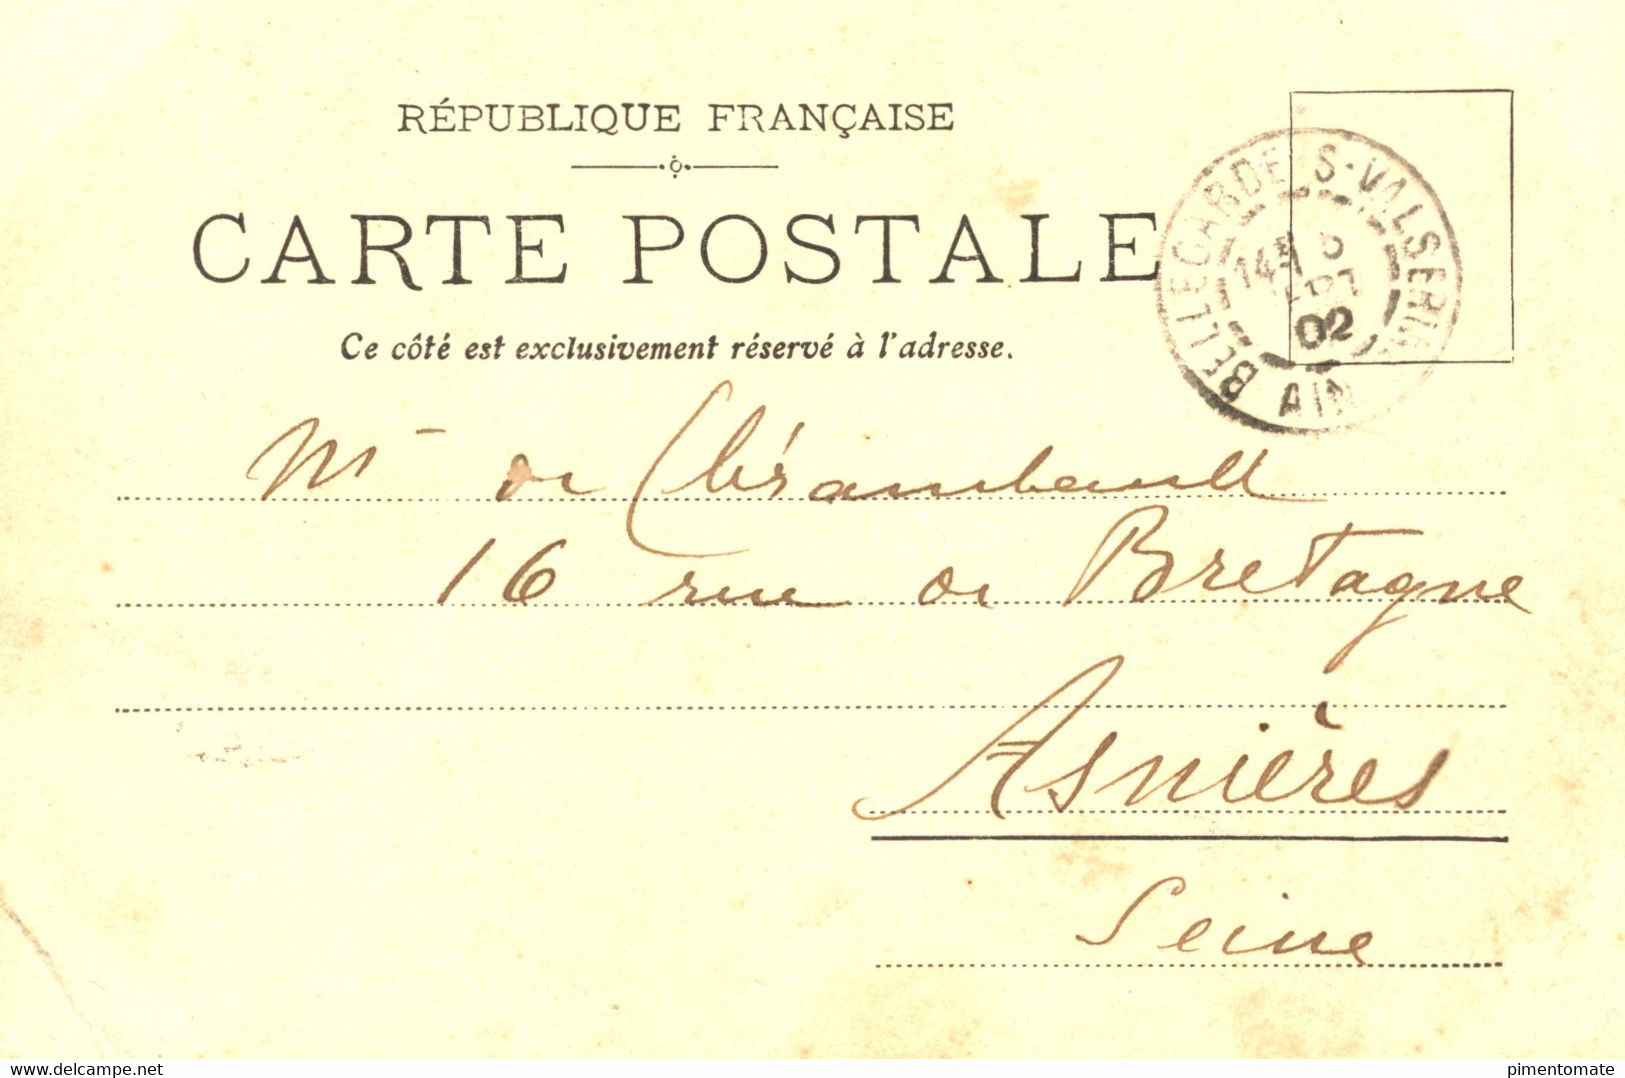 RÉPUBLIQUE FRANÇAISE
CARTE POSTALE
Ce côté est exclusivement réservé à l'adresse.
BELLEGARDE-S-VALSERINE
02
AIN
M de Clérambault
16 rue de Bretagne
Asnières
Seine
delcampe.net
pimentomate